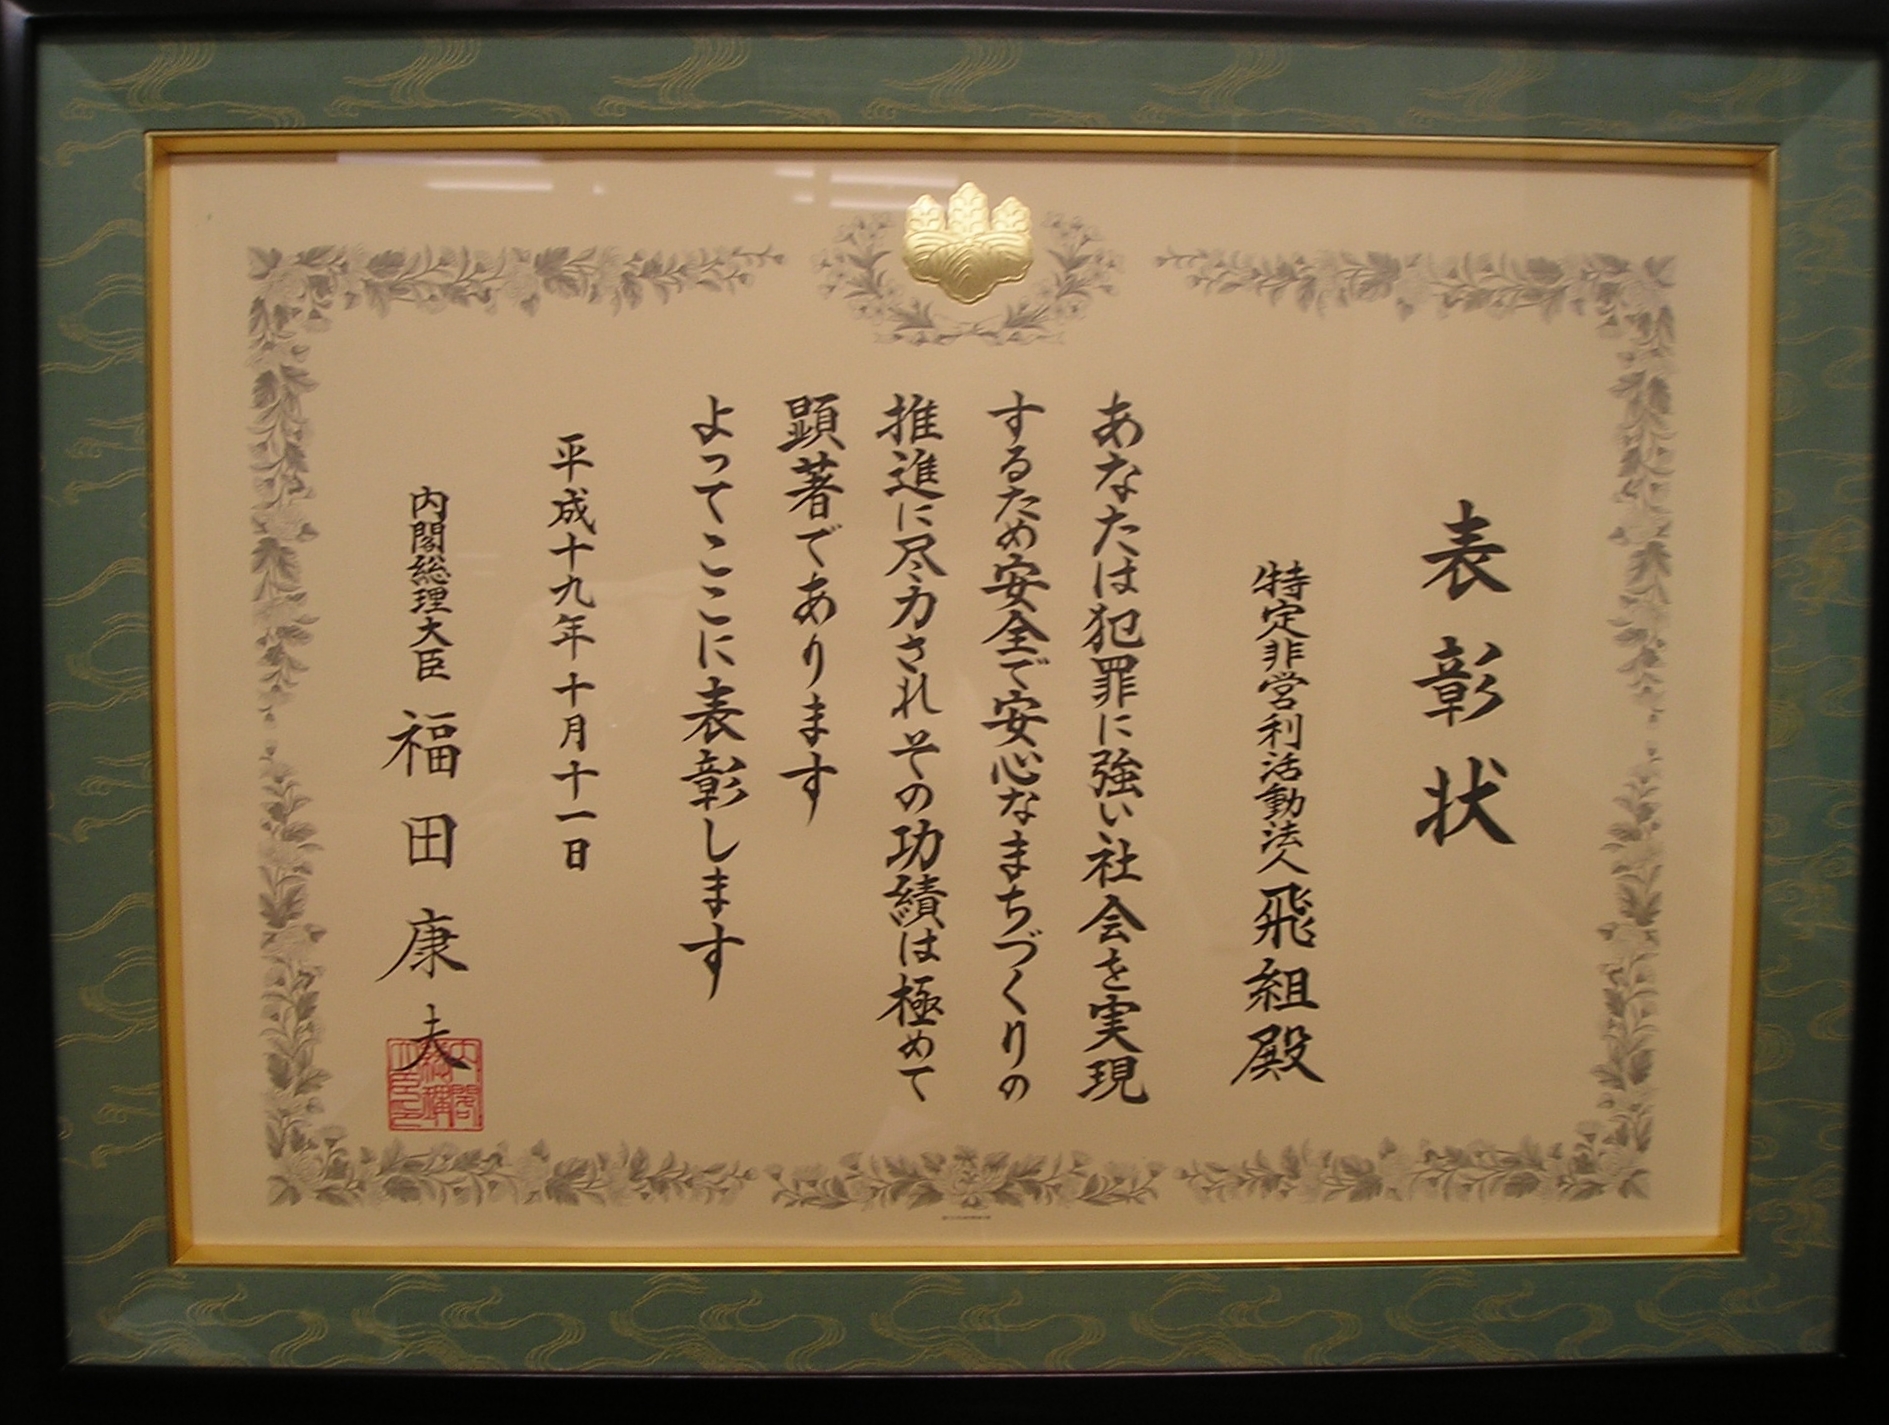 表彰状
特定非営利活動法人飛組殿
あなたは犯罪に強い社会を実現
するため安全で安心なまちづくりの
推進に尽力されその功績は極めて
顕著であります
よってここに表彰します
平成十九年十月十一日
内閣総理大臣 福田康夫
内閣総理大臣印